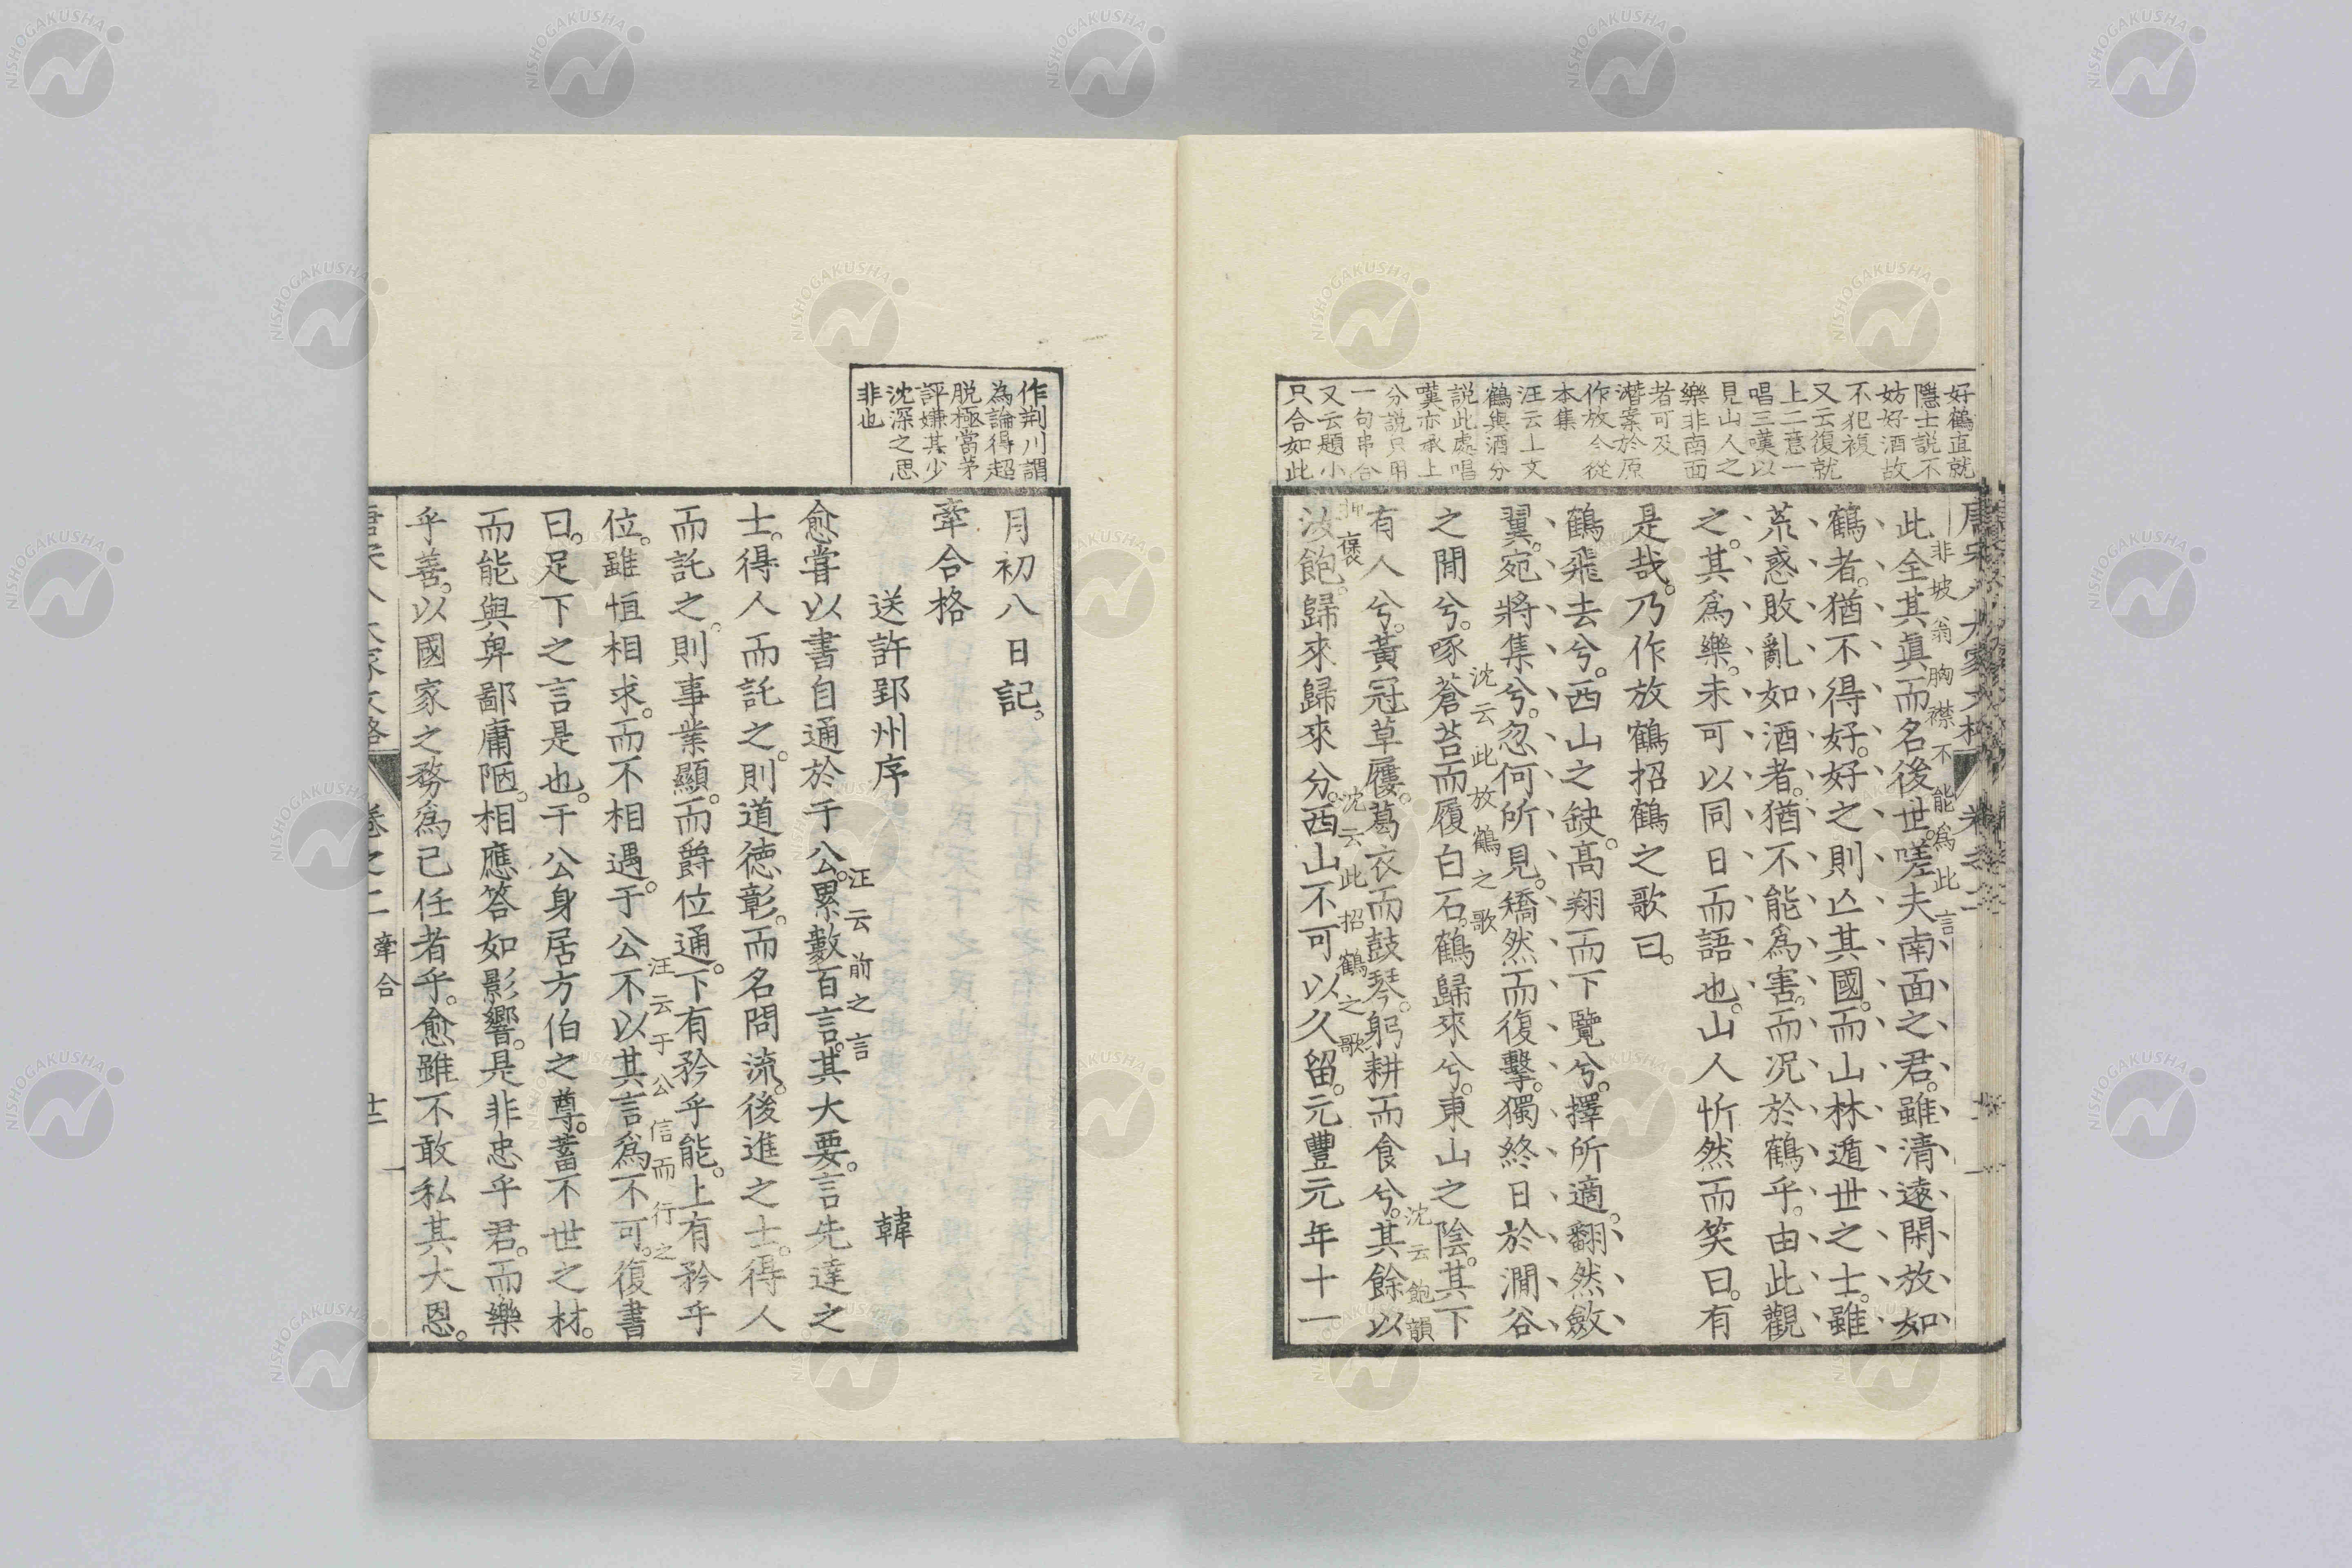 好鶴直就
隱士説不
妨好酒故
不犯複
又云復就
上二意一
唱三嘆以
見山人之
樂非南面
者可及
濳案於原
作放今從
本集
汪云上文
鶴與酒分
説此處唱
嘆亦承上
分説只用
一句串合
又云題小
只合如此
唐宋八大家文格
卷之二
非坡翁胸襟不能爲此言
此全其眞而名後世。嗟夫南面之君。雖清遠閑放如
鶴者。猶不得好。好之則亾其國。而山林遁世之士。雖
荒惑敗亂如酒者。猶不能爲害。而况於鶴乎。由此觀
之。其爲樂。未可以同日而語也。山人忻然而笑曰。有
是哉。乃作放鶴招鶴之歌曰。
鶴飛去兮。西山之缺。髙翔而下覽兮。擇所適。翻然斂
翼。宛將集兮。忽何所見。矯然而復擊。獨終日於澗谷
沈云此放鶴之歌
之閒兮。啄蒼苔而履白石。鶴歸來兮。東山之陰。其下
沈云飽韻
有人兮。黃冠草屨。葛衣而鼓琴。躬耕而食兮。其餘以
押褒
沈云此招鶴之歌
汝飽。歸來歸來兮。西山不可以久留。元豐元年十一
作荆川謂
為論得超
脱極當茅
評嫌其少
沈深之思
非也
月初八日記。
牽合格
送許郢州序
韓
汪云前之言
愈嘗以書自通於于公。累數百言。其大要。言先達之
士。得人而託之。則道徳彰。而名問流。後進之士。得人
而託之。則事業顯。而爵位通。下有矜乎能。上有矜乎
汪云于公信而行之
位。雖恒相求。而不相遇。于公不以其言爲不可。復書
曰。足下之言是也。于公身居方伯之尊。蓄不世之材。
而能與卑鄙庸陋。相應答如影響。是非忠乎君。而樂
乎善。以國家之務爲己任者乎。愈雖不敢私其大恩。
唐宋八大家文格
卷之二
牽合
廿一
NISHOGAKUSHA